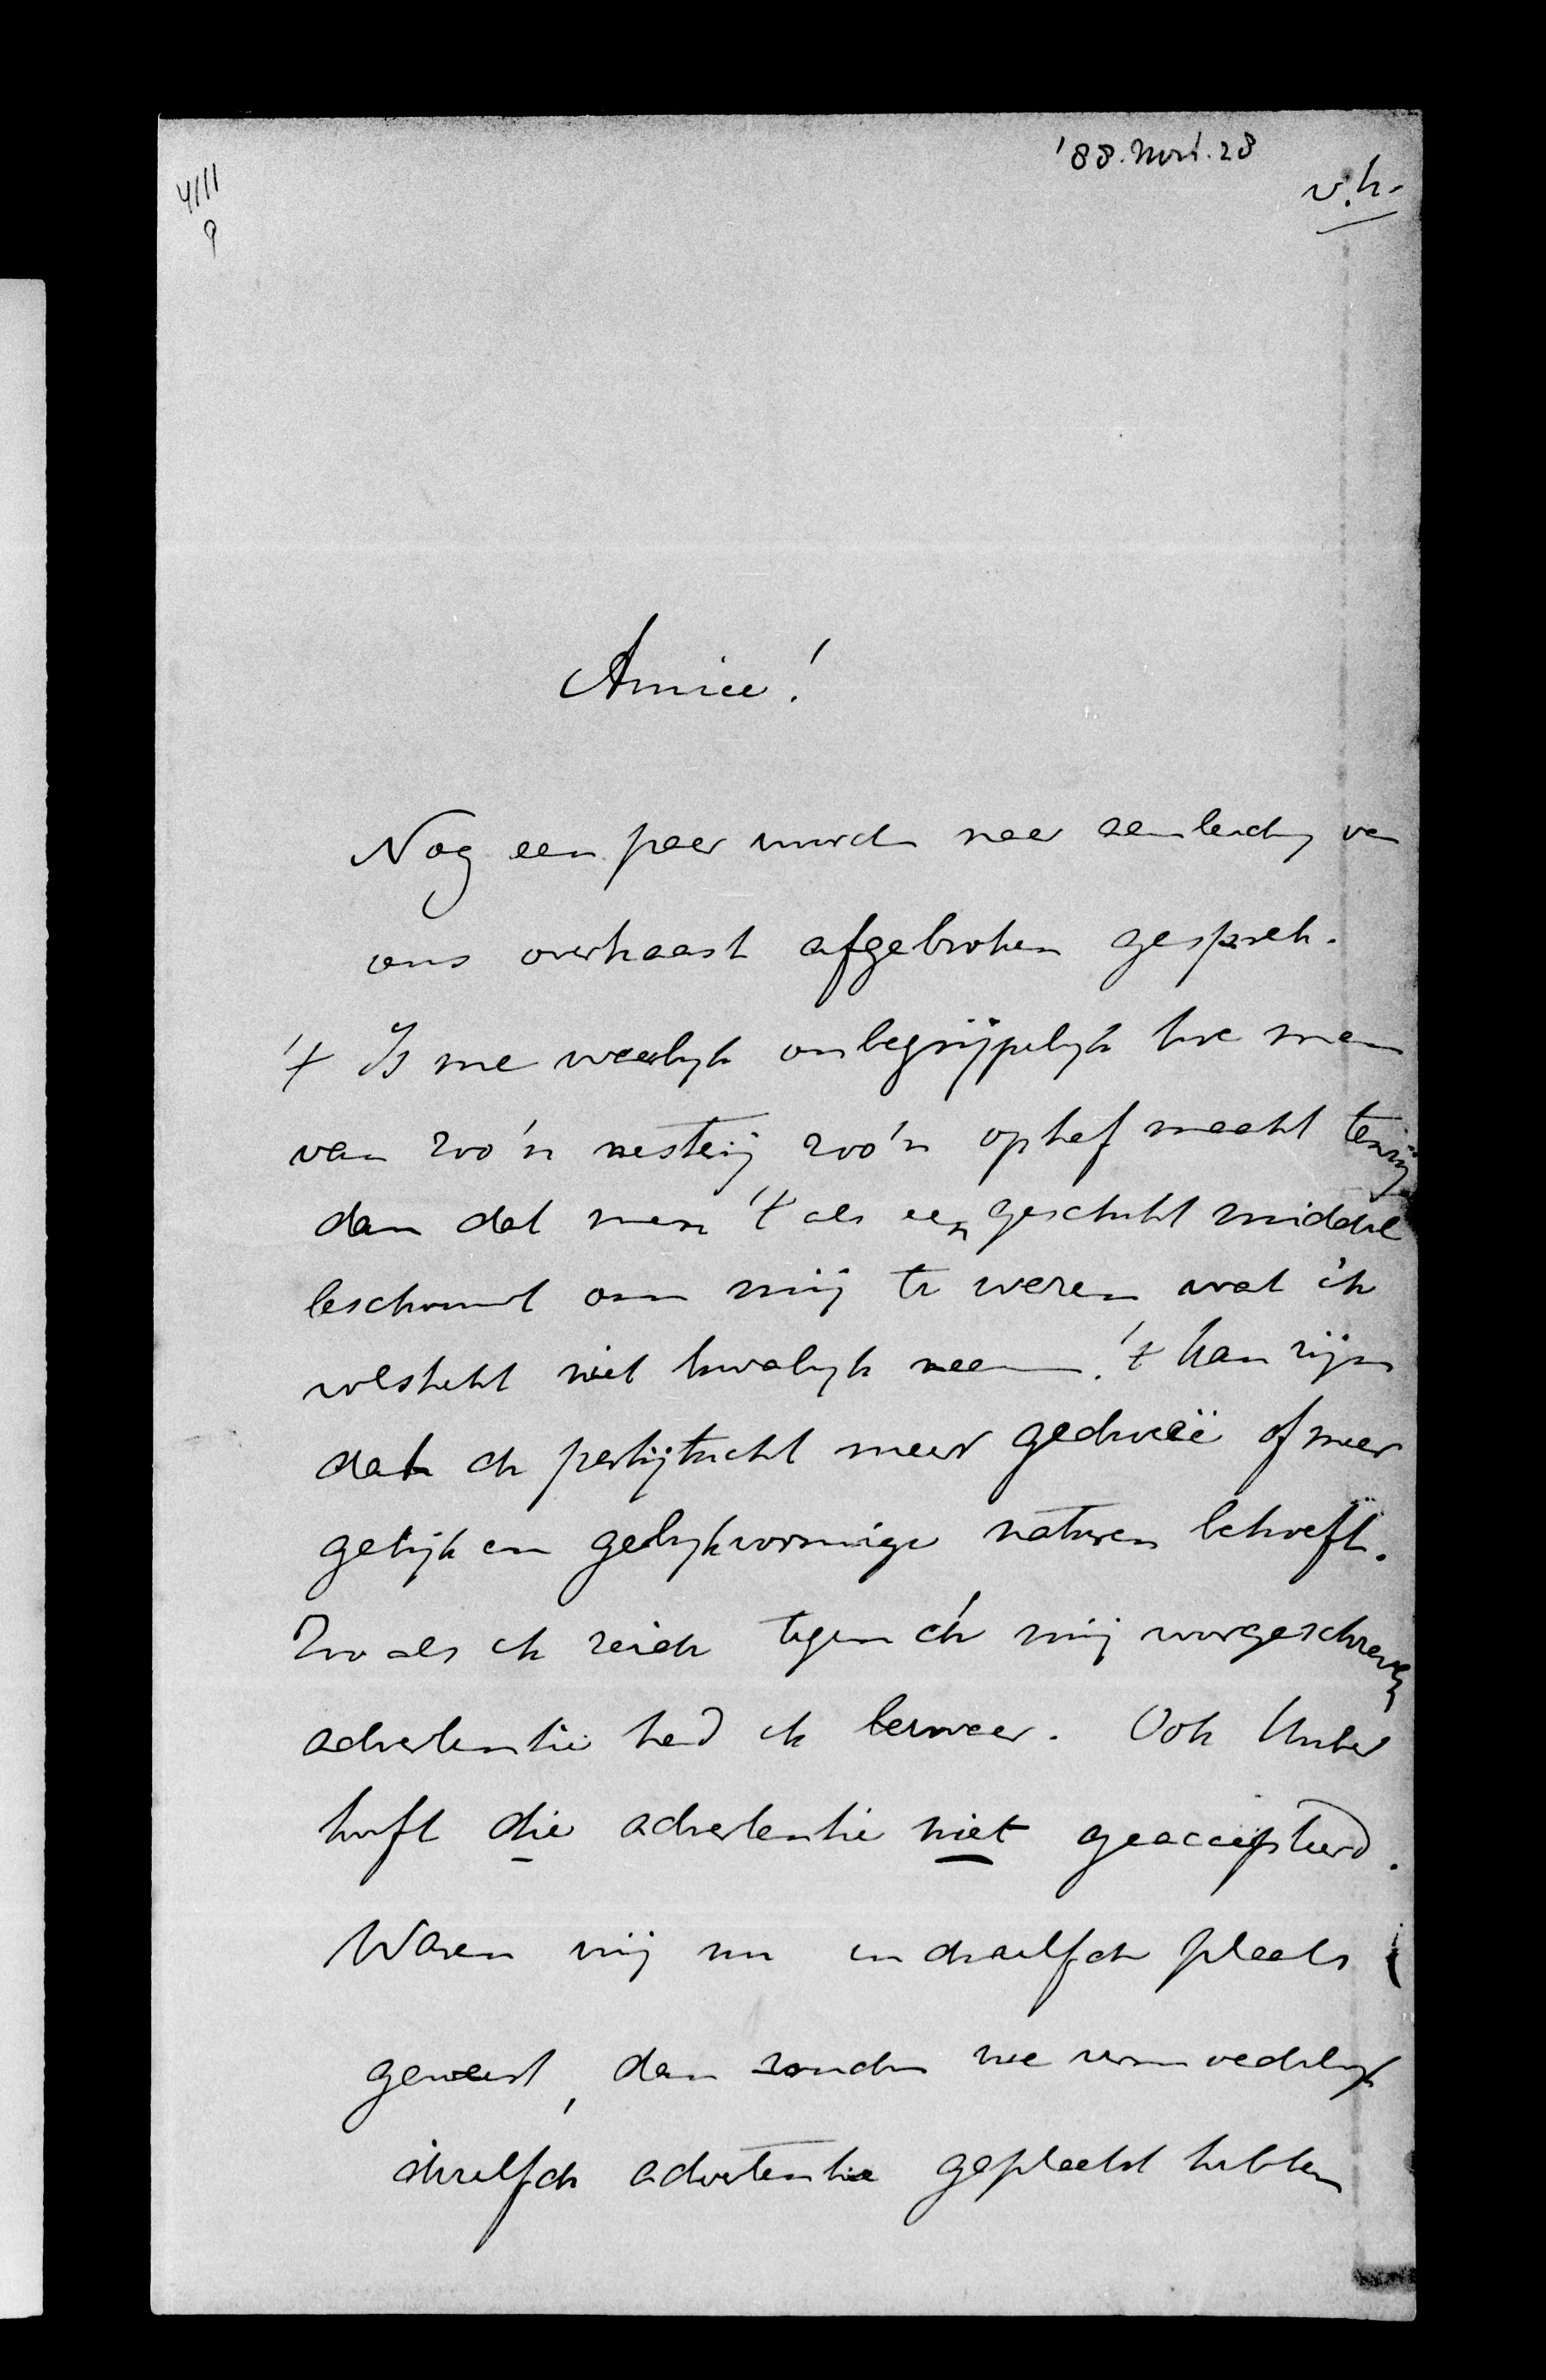 '88. Nov. 28
v.h.
4111
9
Amice!
Nog een paar woorden naar aanleiding van
ons overhaast afgebroken gesprek.
't Is me waarlijk onbegrijpelijk hoe men
van zoo'n nesterij zoo'n ophef maakt tenzij
dan dat men 't als een geschikt middel
beschouwt om mij te weren wat ik
volstrekt niet kwalijk neem. 't kan zijn
dat de partijtucht meer gedweeë of meer
gelijk en gelijkvormige naturen behoeft.
Zooals ik zeide tegen de mij voorgeschreven
advertentie had ik bezwaar. Ook
heeft die advertentie niet geaccepteerd.
Waren wij nu in dezelfde plaats
geweest, dan zouden we vermoedelijk
dezelfde advertentie geplaatst hebben